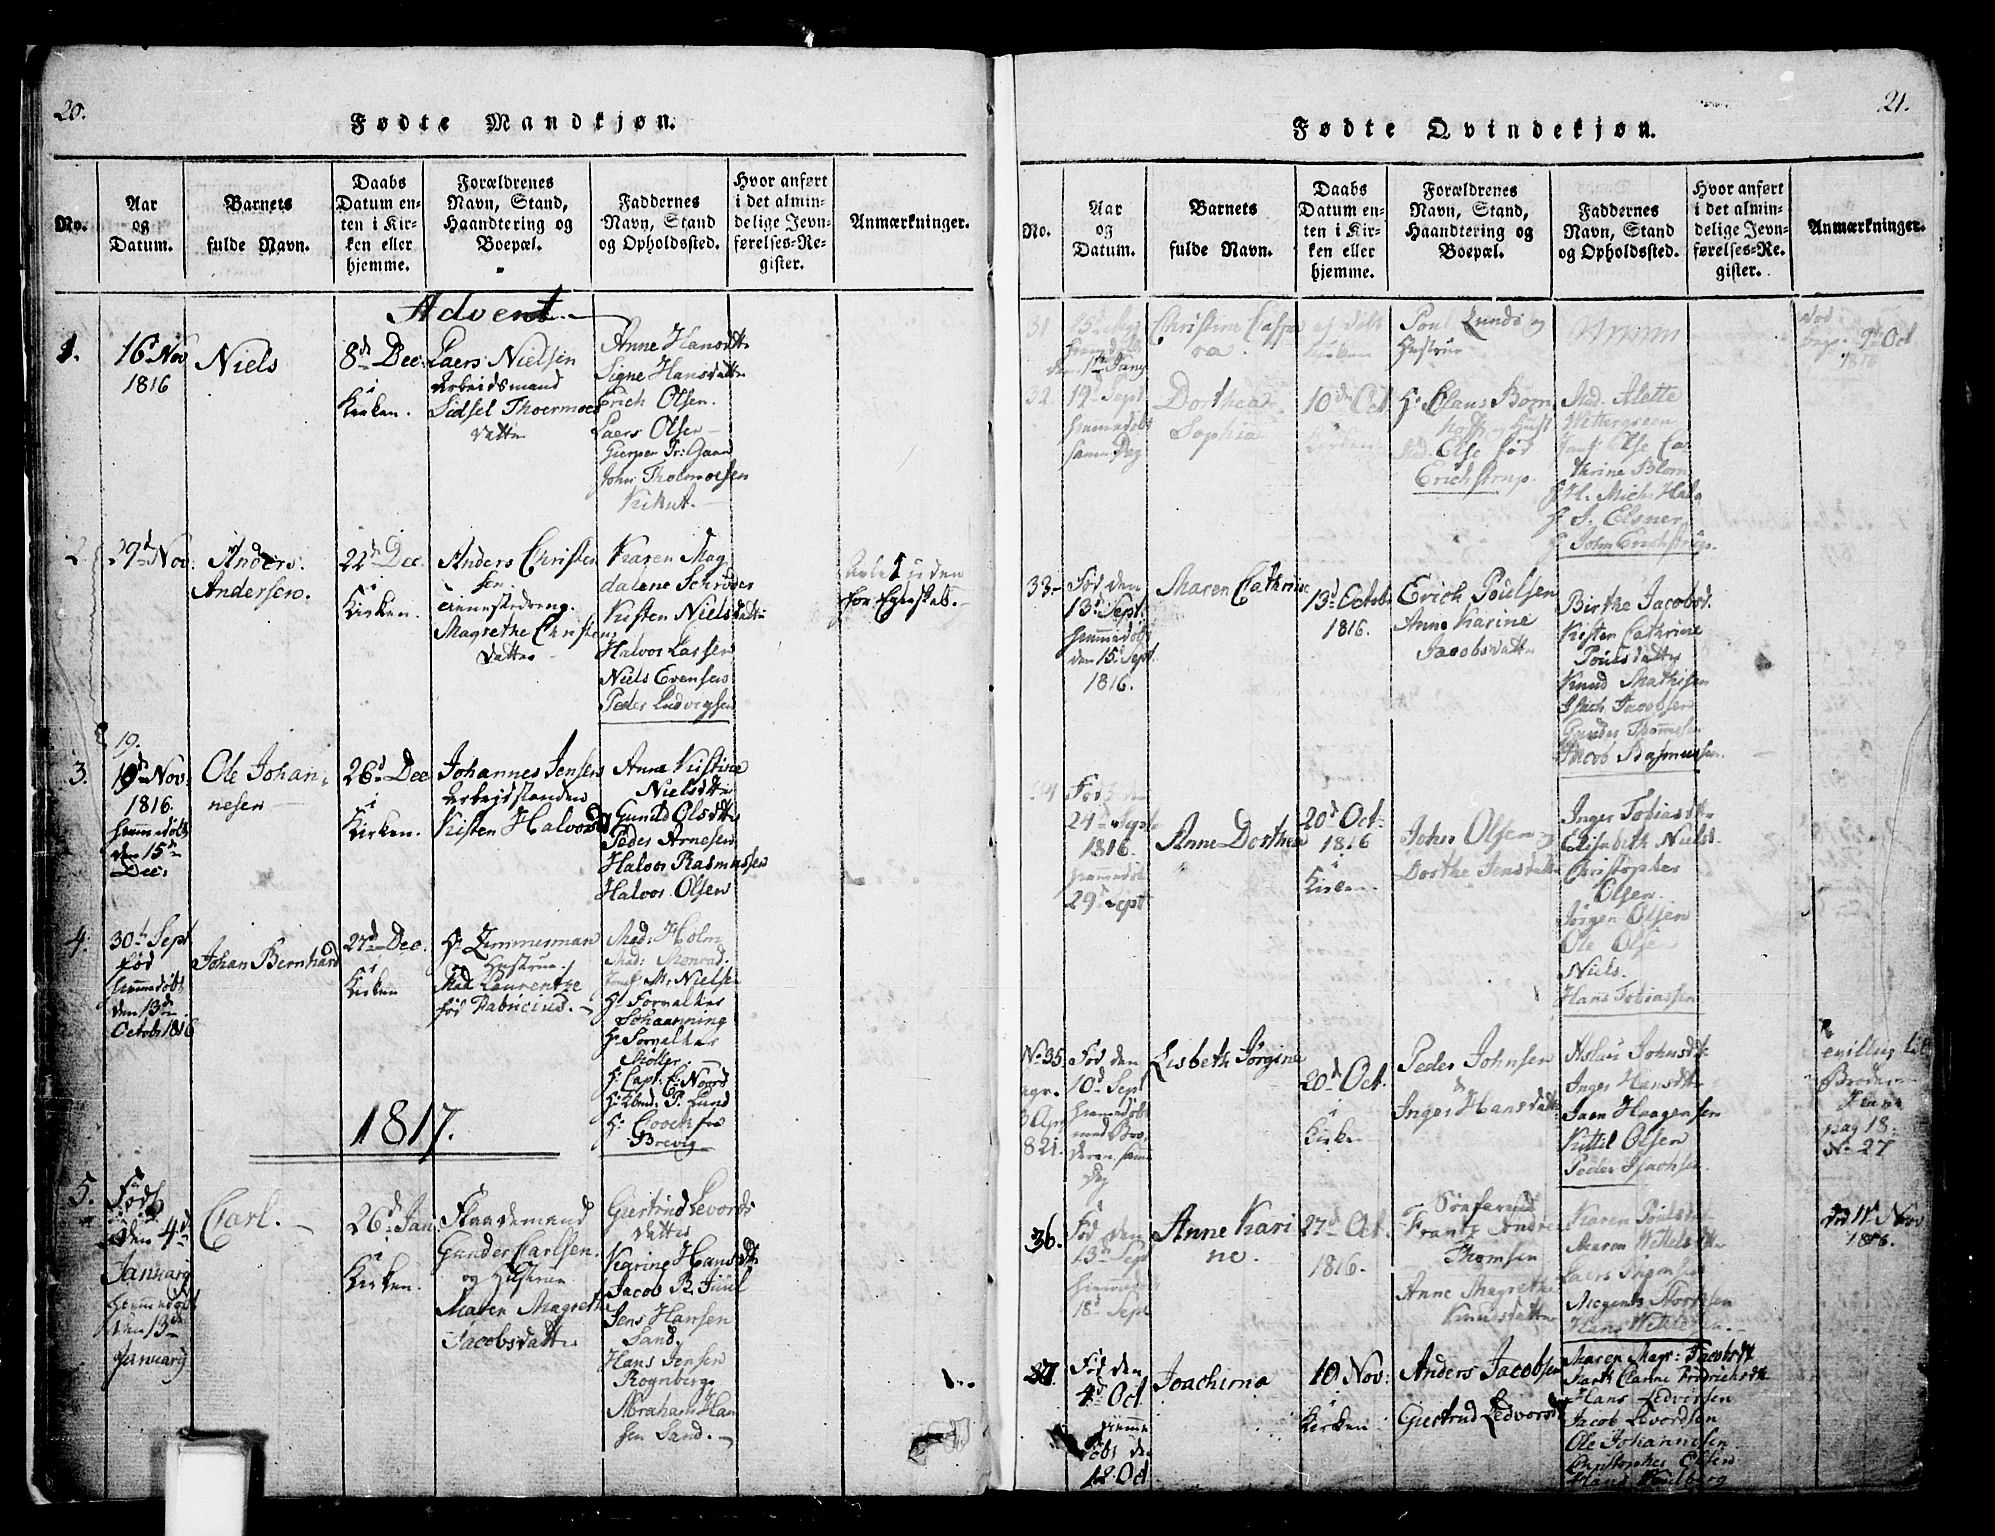 20.
Fødte Mandkjøn.
No.
Aar
og
Datum.
Barnets
fulde Navn.
Daabs
Datum en-
ten i Kir-
ken eller
hjemme.
Forældrenes
Navn, Stand,
Haandtering og
Boepæl.
Faddernes
Navn, Stand
og Opholdssted.
Hvor anført
i det almin-
delige Jevn-
førelses-Re-
gister.
Anmærkninger.
Advent.
1.
16d Nov
1816
Niels
8d Dec:
i
Kirken.
Laers Nielsen
Arbeidsmand
Sidsel Thoermoes
datter
Anne Hansdtr
Signe Hansdatter
Erich Olsen.
Laers Olsen
John Tholmoesen
Kikut.
2
29d Nov.
Anders.
Andersen.
22d Dec.
i
Kirken.
Anders Christen
sen
Magrethe Christens
datter
Karen Mag
dalene Schrøder
Kisten Nielsdatter
Halvor Larsen
Niels Evensen
Peder Ludvigsen
Avlet uden
for Egteskab.
3.
19.
19d Nov.
1816.
hiemmedøbt
den 15d
Dec:
Ole Johan-
nesen
26d Dec
i
Kirken.
Johannes Jensen
Kisten Halvorsd
Anne Kistine
Nielsdtr
Gunild Olsdtr
Peder Arnesen
Halvor Rasmussen
Halvor Olsen
4.
30th Sept
fød
hiemmedøbt
den 13d
Octob: 1816
Johan Bernhard
27d Dec.
i
Kirken
Hr Zimmerman
Hustrue
Mad Laurentze
fød Fabricius.
Mad: Holm
Mad: Monrad.
Jomf: M: Nielsen
Hr Forvalter
Schaanning
Hr Forvalter
Møller.
Hr Capt: C: Noord
P. Lund
Hr Cooch fra
Brevig
1817.
5.
Født
den 4d
January
hiemmedøbt
den 13d
January
Carl.
26d Jan:
i
Kirken.
Flaademand
Gunder Carlsen.
og Hustrue
Maren Magrethe
Jacobsdatter
Giertrud Levords
datter
Karine Hansdtr
Jacob R. Juul
Jens Hansen
Sand.
Hans Jensen
Rognberg
Abraham Han
sen Sand.
21.
Fødte Qvindekjøn.
No.
Aar
og
Datum.
Barnets
fulde Navn.
Daabs
Datum en-
ten i Kir-
ken eller
hjemme.
Forældrenes
Navn, Stand,
Haandtering og
Boepæl.
Faddernes
Navn, Stand
og Opholdssted.
Hvor anført
i det almin-
delige Jevn-
førelses-Re-
gister.
Anmærkninger.
31
Christine Caspa
ra
Poul Lunds og
Hustrue
9d Oct
1816
32
19d Sept
hiemmedøbt
samme Dag
Dorthea
Sophia
10d Oct
Kirken
Hr Claus Born
Mad: Else fød
Erichstrup.
Mad. Alette
Wettergreen
Jomf Else Ca
thrine Blom
H. Mich: Hals
J. Elsner
John Erichstrup.
33
Fød den
13d Sept.
hiemmedøbt
den 15d Sept
1816.
Maren Cathrine
13d Octob
1816.
Erich Poulsen
Anne Karine
Jacobsdatter
Birthe Jacobsd.
Kisten Cathrine
Poulsdatter
Knud Mathisen
Isach Jacobsen
Gunder Thommesen
Jacob Rasmussen
34
Fød den
24d Sept
1816.
hiemmedøbt
29d Sept
Anne Dorthea
20d Oct.
1816
i
Kirken.
John Olsen og
Dorthe Jensdatter
Inger Tobiasdtr
Elisabeth Nielsd.
Christopher
Olsen.
Jørgen Olsen
Ole Olsen
Niels.
Hans Tobiassen
No 35
821.
Fød den
10d Sept
hiemmedøbt
Dag
Lisbeth Jørgine
20d Oct.
i
Kirken
Peder Johnsen
&
Inger Hansdatter
Aslau Johnsdtr
Inger Hansdtr
Jaen Haagensen
Kittil Olsen
Peder Isachsen
Broderen
pag 18.
No 27
36.
Fød den
13d Sept
hiemmedøbt
18d Sept
Anne Kari
ne.
27d Oct.
1816.
Frantz Andreas
Thomsen
Anne Magrethe
Knudsdatter
Karen Poulsdtr
Maren Wettelsdtr
Laers Thomsen
Mogens Thordsen
Hans Wettelsen.
død 11d Nov
1816.
37
Fød den
4d Oct
hiemme
døbt den
12. Oct
Joachima
10 Nov:
i
Kirken
Anders Jacobsen
Giertrud Ledvorsdtr
Maren Magr: Jacobsdtr
Hans Ledvorsen
Jacob Levordsen
Ole Johannesen
Christopher Olsen